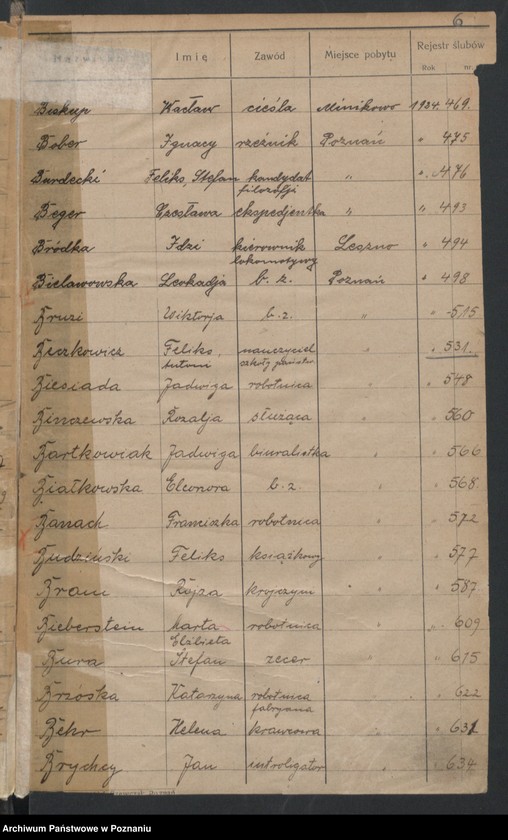 6
Imię Zawód Miejsce pobytu Rejestr ślubów
Rok nr.
Biskup Wacław cieśla Minikowo 1934. 469.
Bober Ignacy rzeźnik Poznań " 475
Burdecki Feliks, Stefan kandydat " " 476
filozofji
Beger Czesława ekspedjentka " " 493
Bródka Idzi kierownik Leszno " 494
lokomotywy
Bielawowska Leokadja b. z. Poznań " 498
Bruzi Wiktorja b. z. " " 515
Beczkowicz Feliks, nauczyciel " " 531.
Antoni szkoły
Biesiada Jadwiga robotnica " " 548
Binczewska Rozalja służąca " " 560
Bartkowiak Jadwiga biuralistka " " 566
Białkowska Eleonora b. z. " " 568.
Banach Franciszka robotnica " " 572
Budziński Feliks książkowy " " 577
Bram Rojza krojczyni " " 587
Bieberstein Marta robotnica " " 609
Elżbieta
Bura Stefan zecer " " 615
Brzoska Katarzyna robotnica " " 622
fabryczna
Behr Helena krawcowa " " 631
Brychcy Jan introligator " " 634
Archiwum Państwowe w Poznaniu